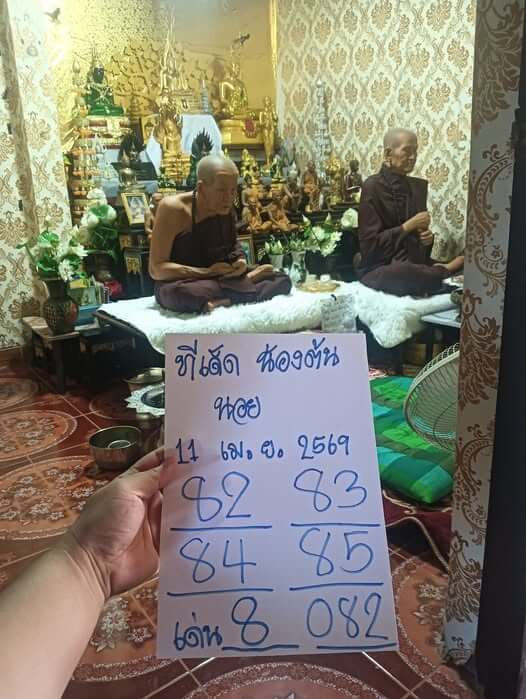 ทีเด็ด น้องต้น
นอย
11 เม.ย. 2569
82 83
84 85
เด่น 8 082